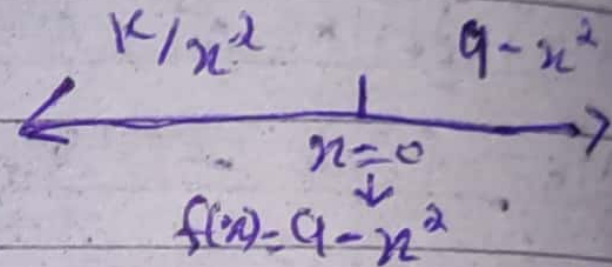 K/x² 9-x²
x=0
↓
f(x)=9-x²